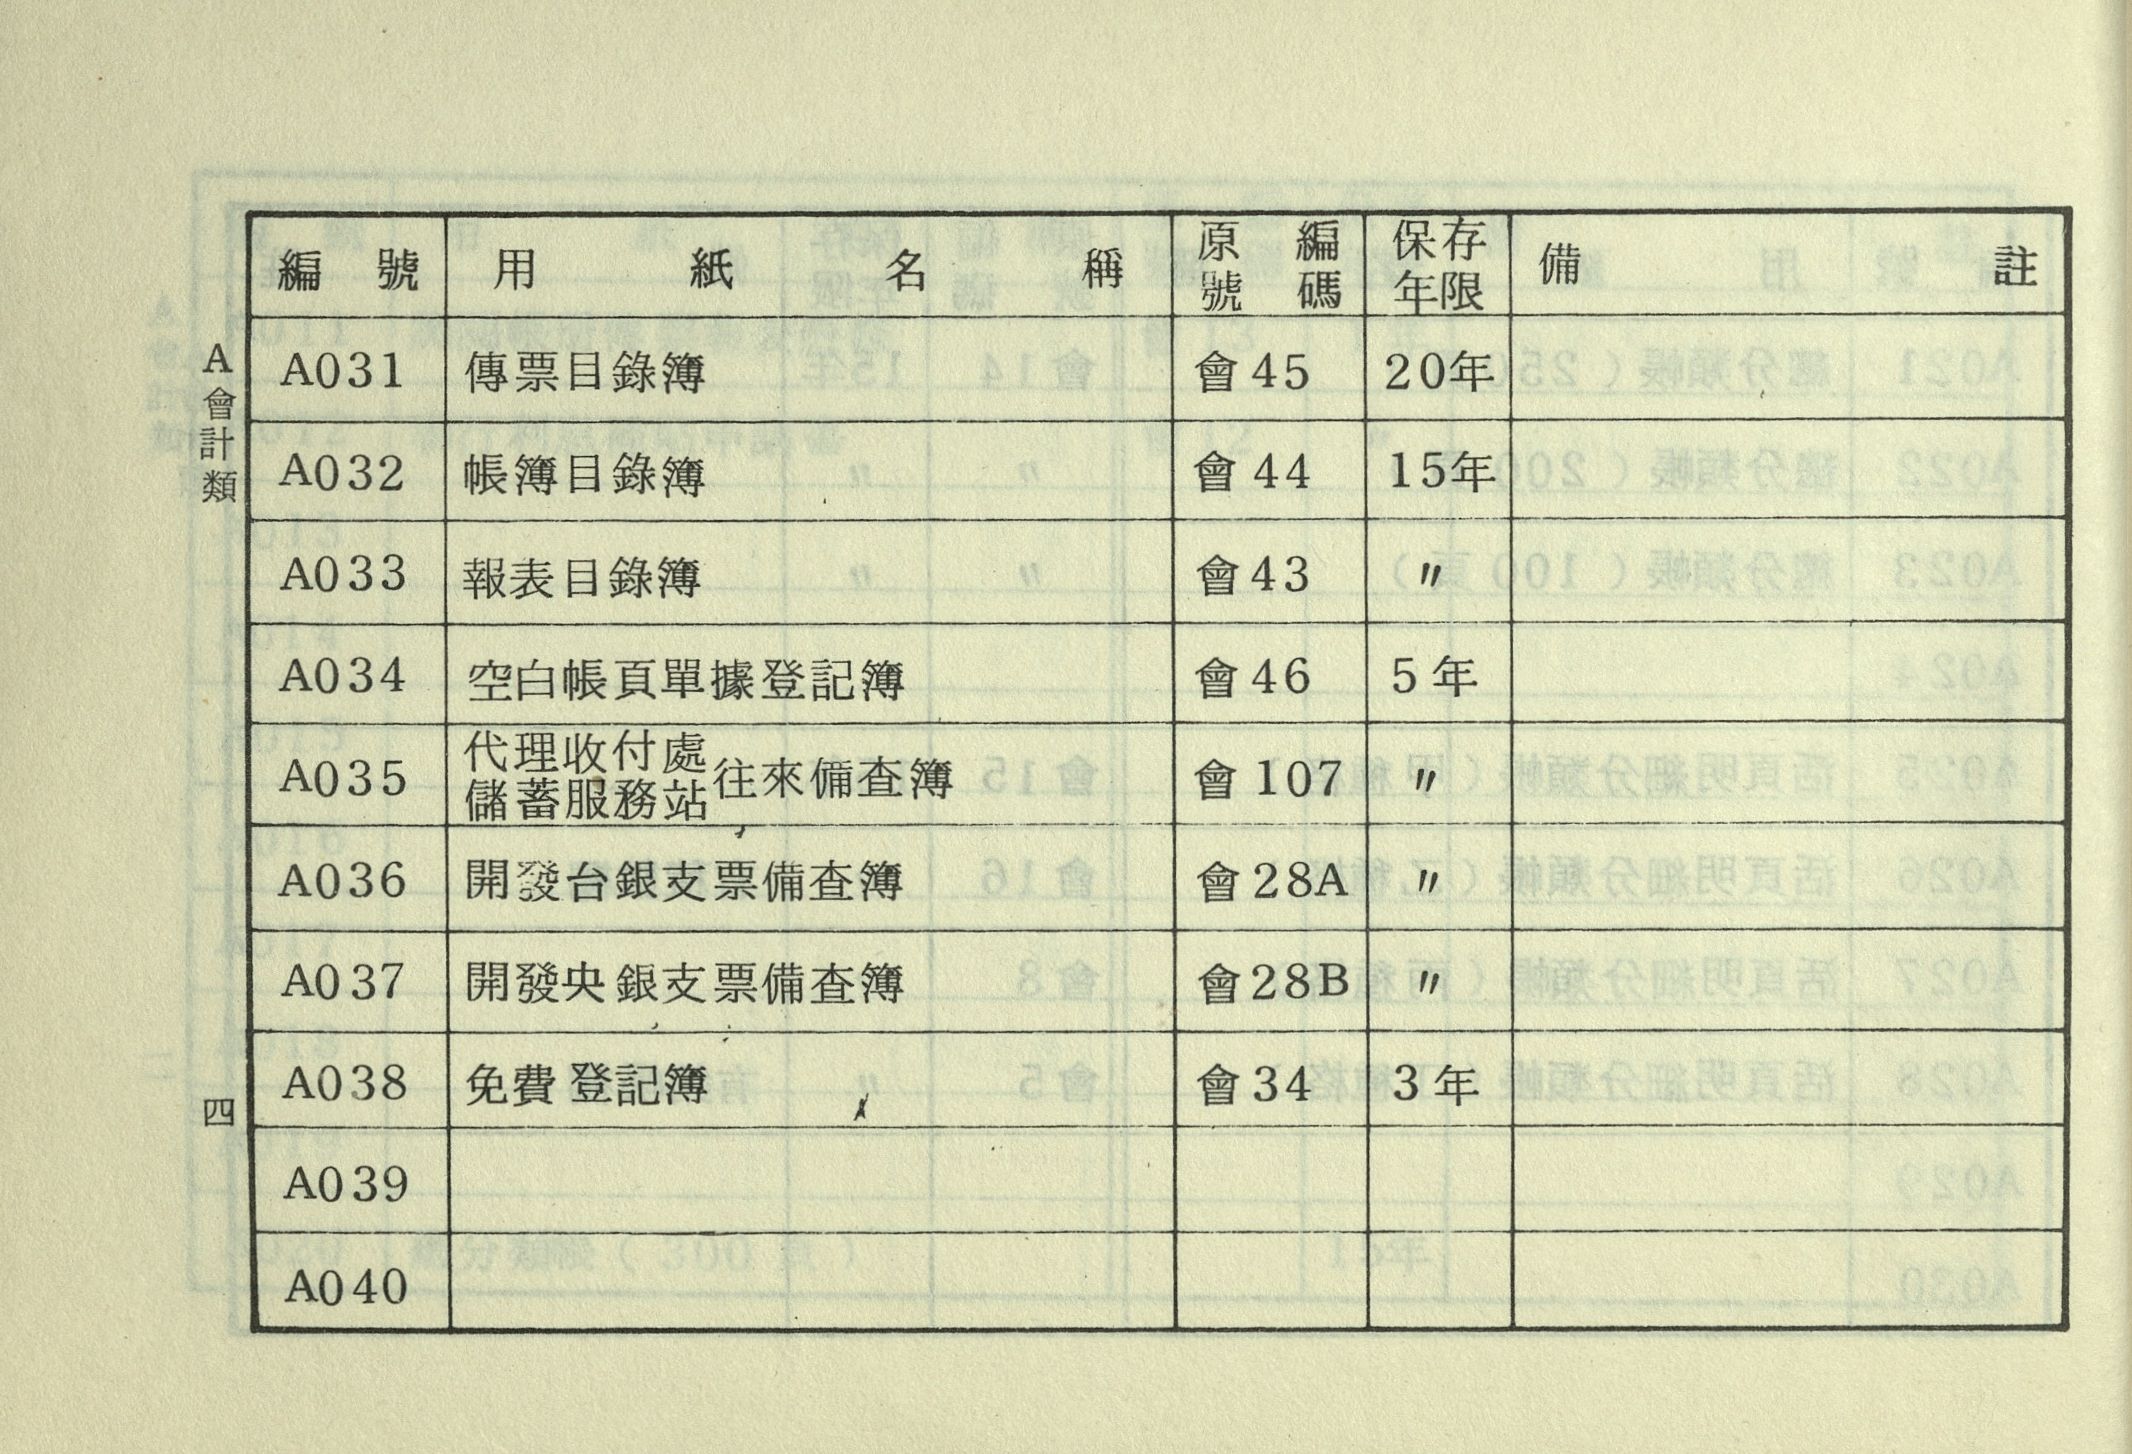 A會計類
四
編號 用紙名稱 原編號碼 保存年限 備註
A031 傳票目錄簿 會45 20年
A032 帳簿目錄簿 會44 15年
A033 報表目錄簿 會43 〃
A034 空白帳頁單據登記簿 會46 5年
A035 代理收付處儲蓄服務站往來備查簿 會107 〃
A036 開發台銀支票備查簿 會28A 〃
A037 開發央銀支票備查簿 會28B 〃
A038 免費登記簿 會34 3年
A039
A040